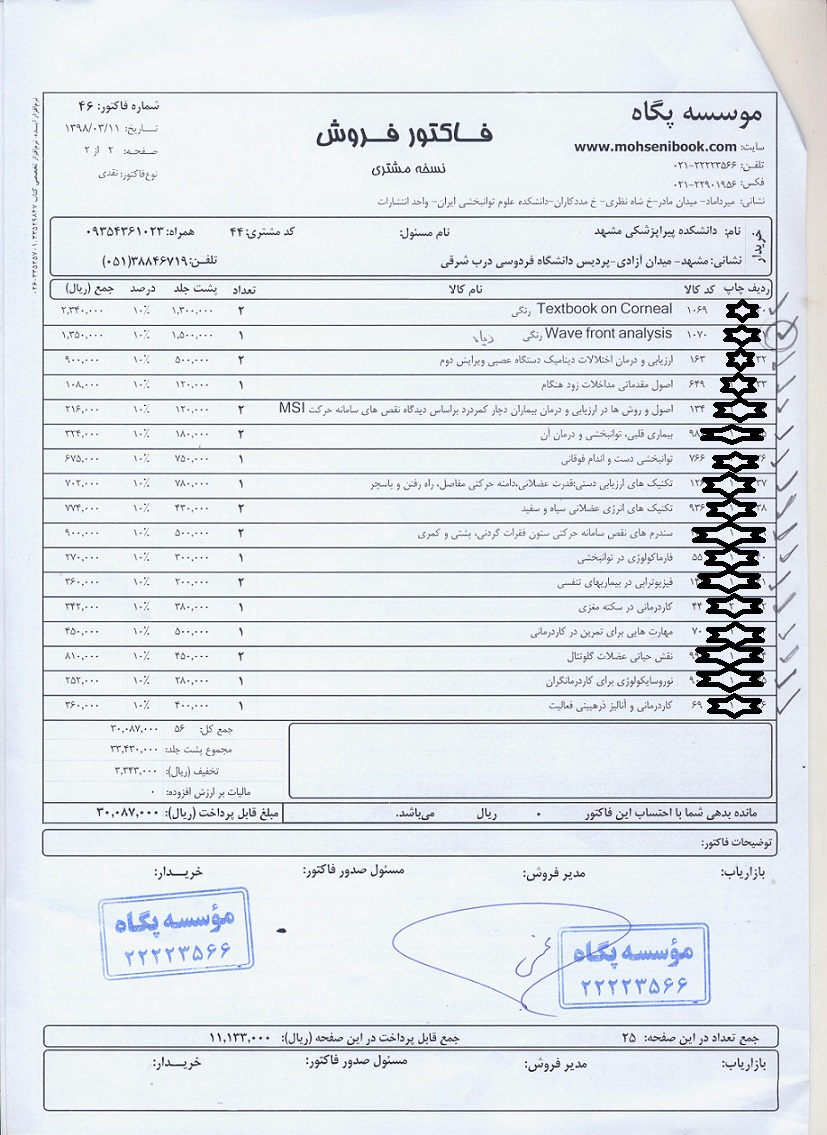 موسسه پگاه
سایت: www.mohsenibook.com
تلفن: ۰۲۱-۲۲۲۲۳۵۶۶
فکس: ۰۲۱-۲۲۹۰۱۹۵۶
نشانی: میرداماد- میدان مادر-خ شاه نظری- خ مددکاران-دانشکده علوم توانبخشی ایران- واحد انتشارات
فاکتور فروش
نسخه مشتری
شماره فاکتور: ۴۶
تاریخ: ۱۳۹۸/۰۳/۱۱
صفحه: ۲ از ۲
نوع‌فاکتور: نقدی
خریدار
نام: دانشکده پیراپزشکی مشهد نام مسئول: کد مشتری: ۴۴ همراه: ۰۹۳۵۴۳۶۱۰۲۳
نشانی: مشهد- میدان آزادی-پردیس دانشگاه فردوسی درب شرقی تلفن: ۳۸۸۴۶۷۱۹(۰۵۱)
ردیف چاپ کد کالا نام کالا تعداد پشت جلد درصد جمع (ریال)
۱۰۶۹ Textbook on Corneal رنگی ۲ ۱,۳۰۰,۰۰۰ ۱۰٪ ۲,۳۴۰,۰۰۰
۱۰۷۰ Wave front analysis رنگی ۱ ۱,۵۰۰,۰۰۰ ۱۰٪ ۱,۳۵۰,۰۰۰
۳۲ ۱۶۳ ارزیابی و درمان اختلالات دینامیک دستگاه عصبی ویرایش دوم ۲ ۵۰۰,۰۰۰ ۱۰٪ ۹۰۰,۰۰۰
۳۳ ۶۴۹ اصول مقدماتی مداخلات زود هنگام ۱ ۱۲۰,۰۰۰ ۱۰٪ ۱۰۸,۰۰۰
۱۳۴ اصول و روش ها در ارزیابی و درمان بیماران دچار کمردرد براساس دیدگاه نقص های سامانه حرکت MSI ۲ ۱۲۰,۰۰۰ ۱۰٪ ۲۱۶,۰۰۰
بیماری قلبی، توانبخشی و درمان آن ۲ ۱۸۰,۰۰۰ ۱۰٪ ۳۲۴,۰۰۰
۷۶۶ توانبخشی دست و اندام فوقانی ۱ ۷۵۰,۰۰۰ ۱۰٪ ۶۷۵,۰۰۰
۳۷ تکنیک های ارزیابی دستی:قدرت عضلانی،دامنه حرکتی مفاصل، راه رفتن و پاسچر ۱ ۷۸۰,۰۰۰ ۱۰٪ ۷۰۲,۰۰۰
۳۸ ۹۳۶ تکنیک های انرژی عضلانی سیاه و سفید ۲ ۴۳۰,۰۰۰ ۱۰٪ ۷۷۴,۰۰۰
سندرم های نقص سامانه حرکتی ستون فقرات گردنی، پشتی و کمری ۲ ۵۰۰,۰۰۰ ۱۰٪ ۹۰۰,۰۰۰
فارماکولوژی در توانبخشی ۱ ۳۰۰,۰۰۰ ۱۰٪ ۲۷۰,۰۰۰
فیزیوتراپی در بیماریهای تنفسی ۲ ۲۰۰,۰۰۰ ۱۰٪ ۳۶۰,۰۰۰
۴۴ کاردرمانی در سکته مغزی ۱ ۳۸۰,۰۰۰ ۱۰٪ ۳۴۲,۰۰۰
مهارت هایی برای تمرین در کاردرمانی ۱ ۵۰۰,۰۰۰ ۱۰٪ ۴۵۰,۰۰۰
نقش حیاتی عضلات گلوتئال ۲ ۴۵۰,۰۰۰ ۱۰٪ ۸۱۰,۰۰۰
نوروسایکولوژی برای کاردرمانگران ۱ ۲۸۰,۰۰۰ ۱۰٪ ۲۵۲,۰۰۰
۶۹ کاردرمانی و آنالیز ذرهبینی فعالیت ۱ ۴۰۰,۰۰۰ ۱۰٪ ۳۶۰,۰۰۰
جمع کل: ۵۶ ۳۰,۰۸۷,۰۰۰
مجموع پشت جلد: ۳۳,۴۳۰,۰۰۰
تخفیف (ریال): ۳,۳۴۳,۰۰۰
مالیات بر ارزش افزوده: ۰
مانده بدهی شما با احتساب این فاکتور ۰ ریال می‌باشد. مبلغ قابل پرداخت (ریال): ۳۰,۰۸۷,۰۰۰
توضیحات فاکتور:
بازاریاب: مدیر فروش: مسئول صدور فاکتور: خریدار:
مؤسسه پگاه
۲۲۲۲۳۵۶۶
مؤسسه پگاه
۲۲۲۲۳۵۶۶
جمع تعداد در این صفحه: ۲۵ جمع قابل پرداخت در این صفحه (ریال): ۱۱,۱۳۳,۰۰۰
بازاریاب: مدیر فروش: مسئول صدور فاکتور: خریدار: